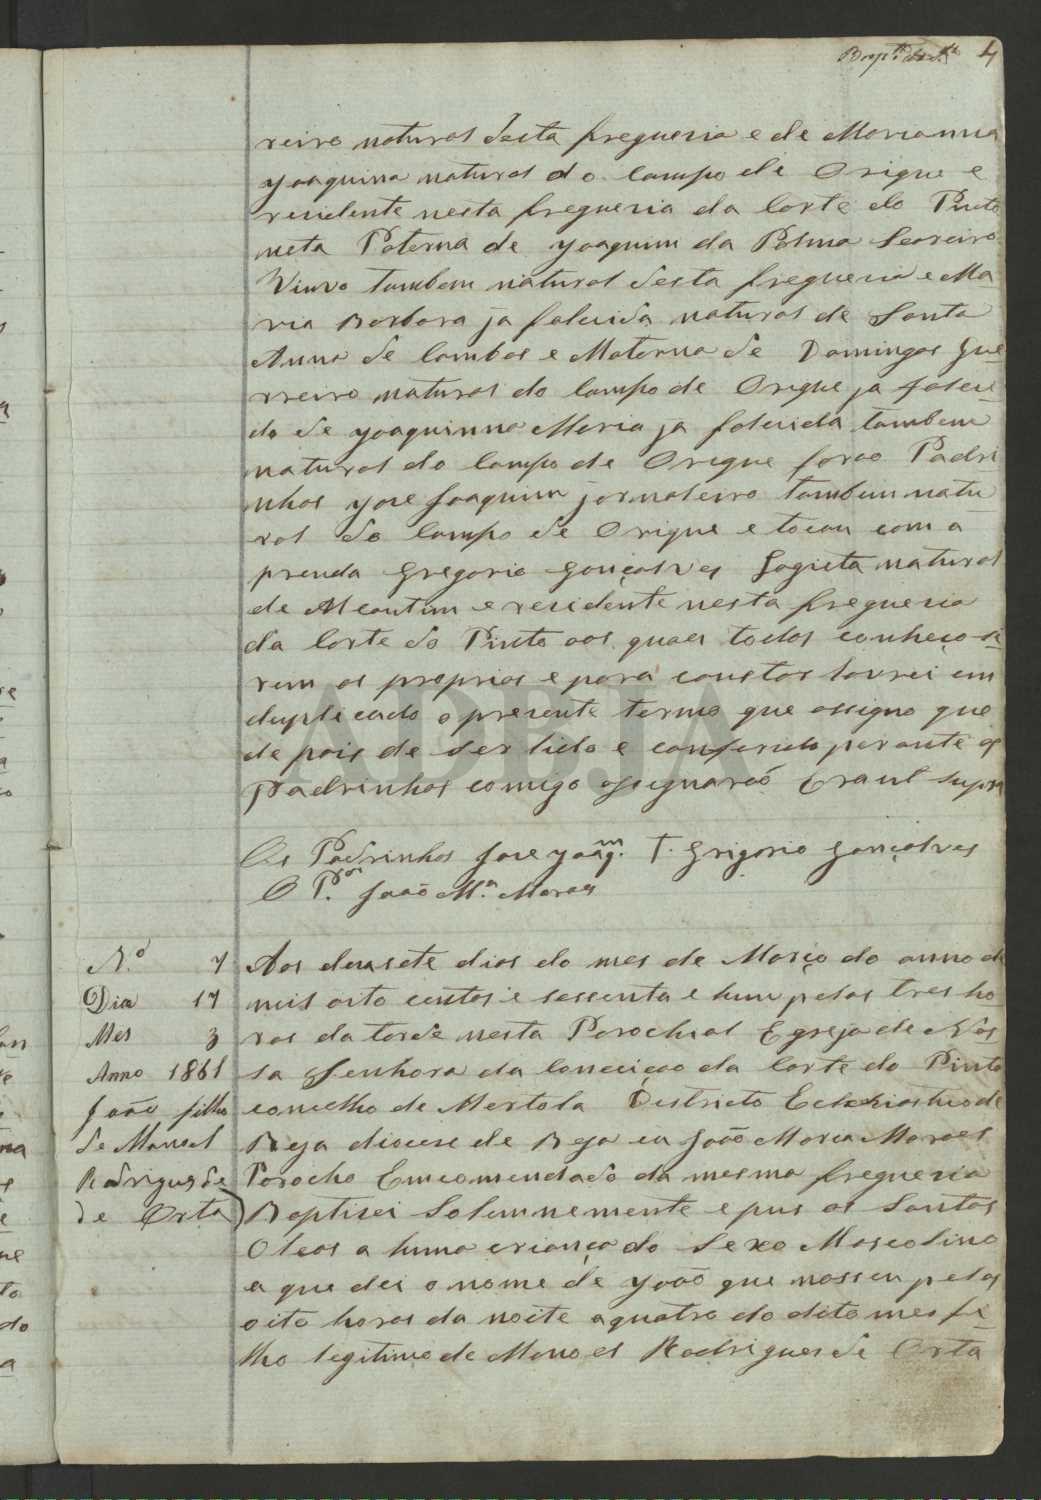 4
reiro natural desta freguezia e de Marianna
Joaquina natural do Campo de Orique e
rezidente nesta freguezia da Corte do Pinto
neta Paterna de Joaquim da Palma Seareiro
Viuvo tambem natural desta freguezia e Ma
ria Barbara ja falecida natural de Santa
Anna de Cambas e Materna de Domingos Gue
rreiro natural do Campo de Orique ja falesi
do de Joaquinna Maria ja falecida tambem
natural do Campo de Orique forão Padri
nhos Jose Joaquim jornaleiro tambem natu
ral do Campo de Orique e tocou com a
prenda Gregorio Gonçalves Logista natural
de Alcoutim e rezidente nesta freguezia
da Corte do Pinto aos quaes todos conheço se
rem os proprios e para constar lavrei em
duplicado o prezente termo que assigno que
de pois de ser lido e conferido perante os
Padrinhos comigo assignarão Era ut supra
Os Padrinhos Jose Joaqm. T. Grigorio Gonçalves
O Pror. João Ma. Moraes
N.o 7
Dia 17
Mes 3
Anno 1861
João filho
de Manoel
Rodrigues de
de Orta
Aos dezasete dias do mes de Março do anno de
mis oito centos e sessenta e hum pelas tres ho
ras da tarde nesta Parochial Egreja de Nos
sa Senhora da Conceição da Corte do Pinto
concelho de Mertola Destricto Ecleziastico de
Beja diocese de Beja eu João Maria Moraes
Parocho Emcomendado da mesma freguezia
Baptisei Solemnemente e pus os Santos
Oleos a huma criança do Sexo Mascolino
a que dei o nome de João que nasseu pelas
oito horas da noite a quatro do dito mes fi
lho legitimo de Manoel Rodrigues de Orta